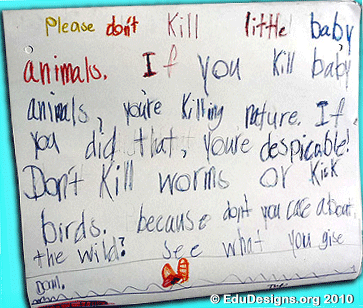 Please don't kill little baby
animals. If you kill baby
animals, you're killing nature. If
you did that, you're despicable!
Don't kill worms or kick
birds. because don't you care about
the wild? See what you give
© EduDesigns.org 2010